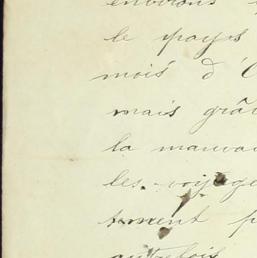 environs
le pays
mois d'
mais grâ
la mauvai
les voyage
tment p
autrefois